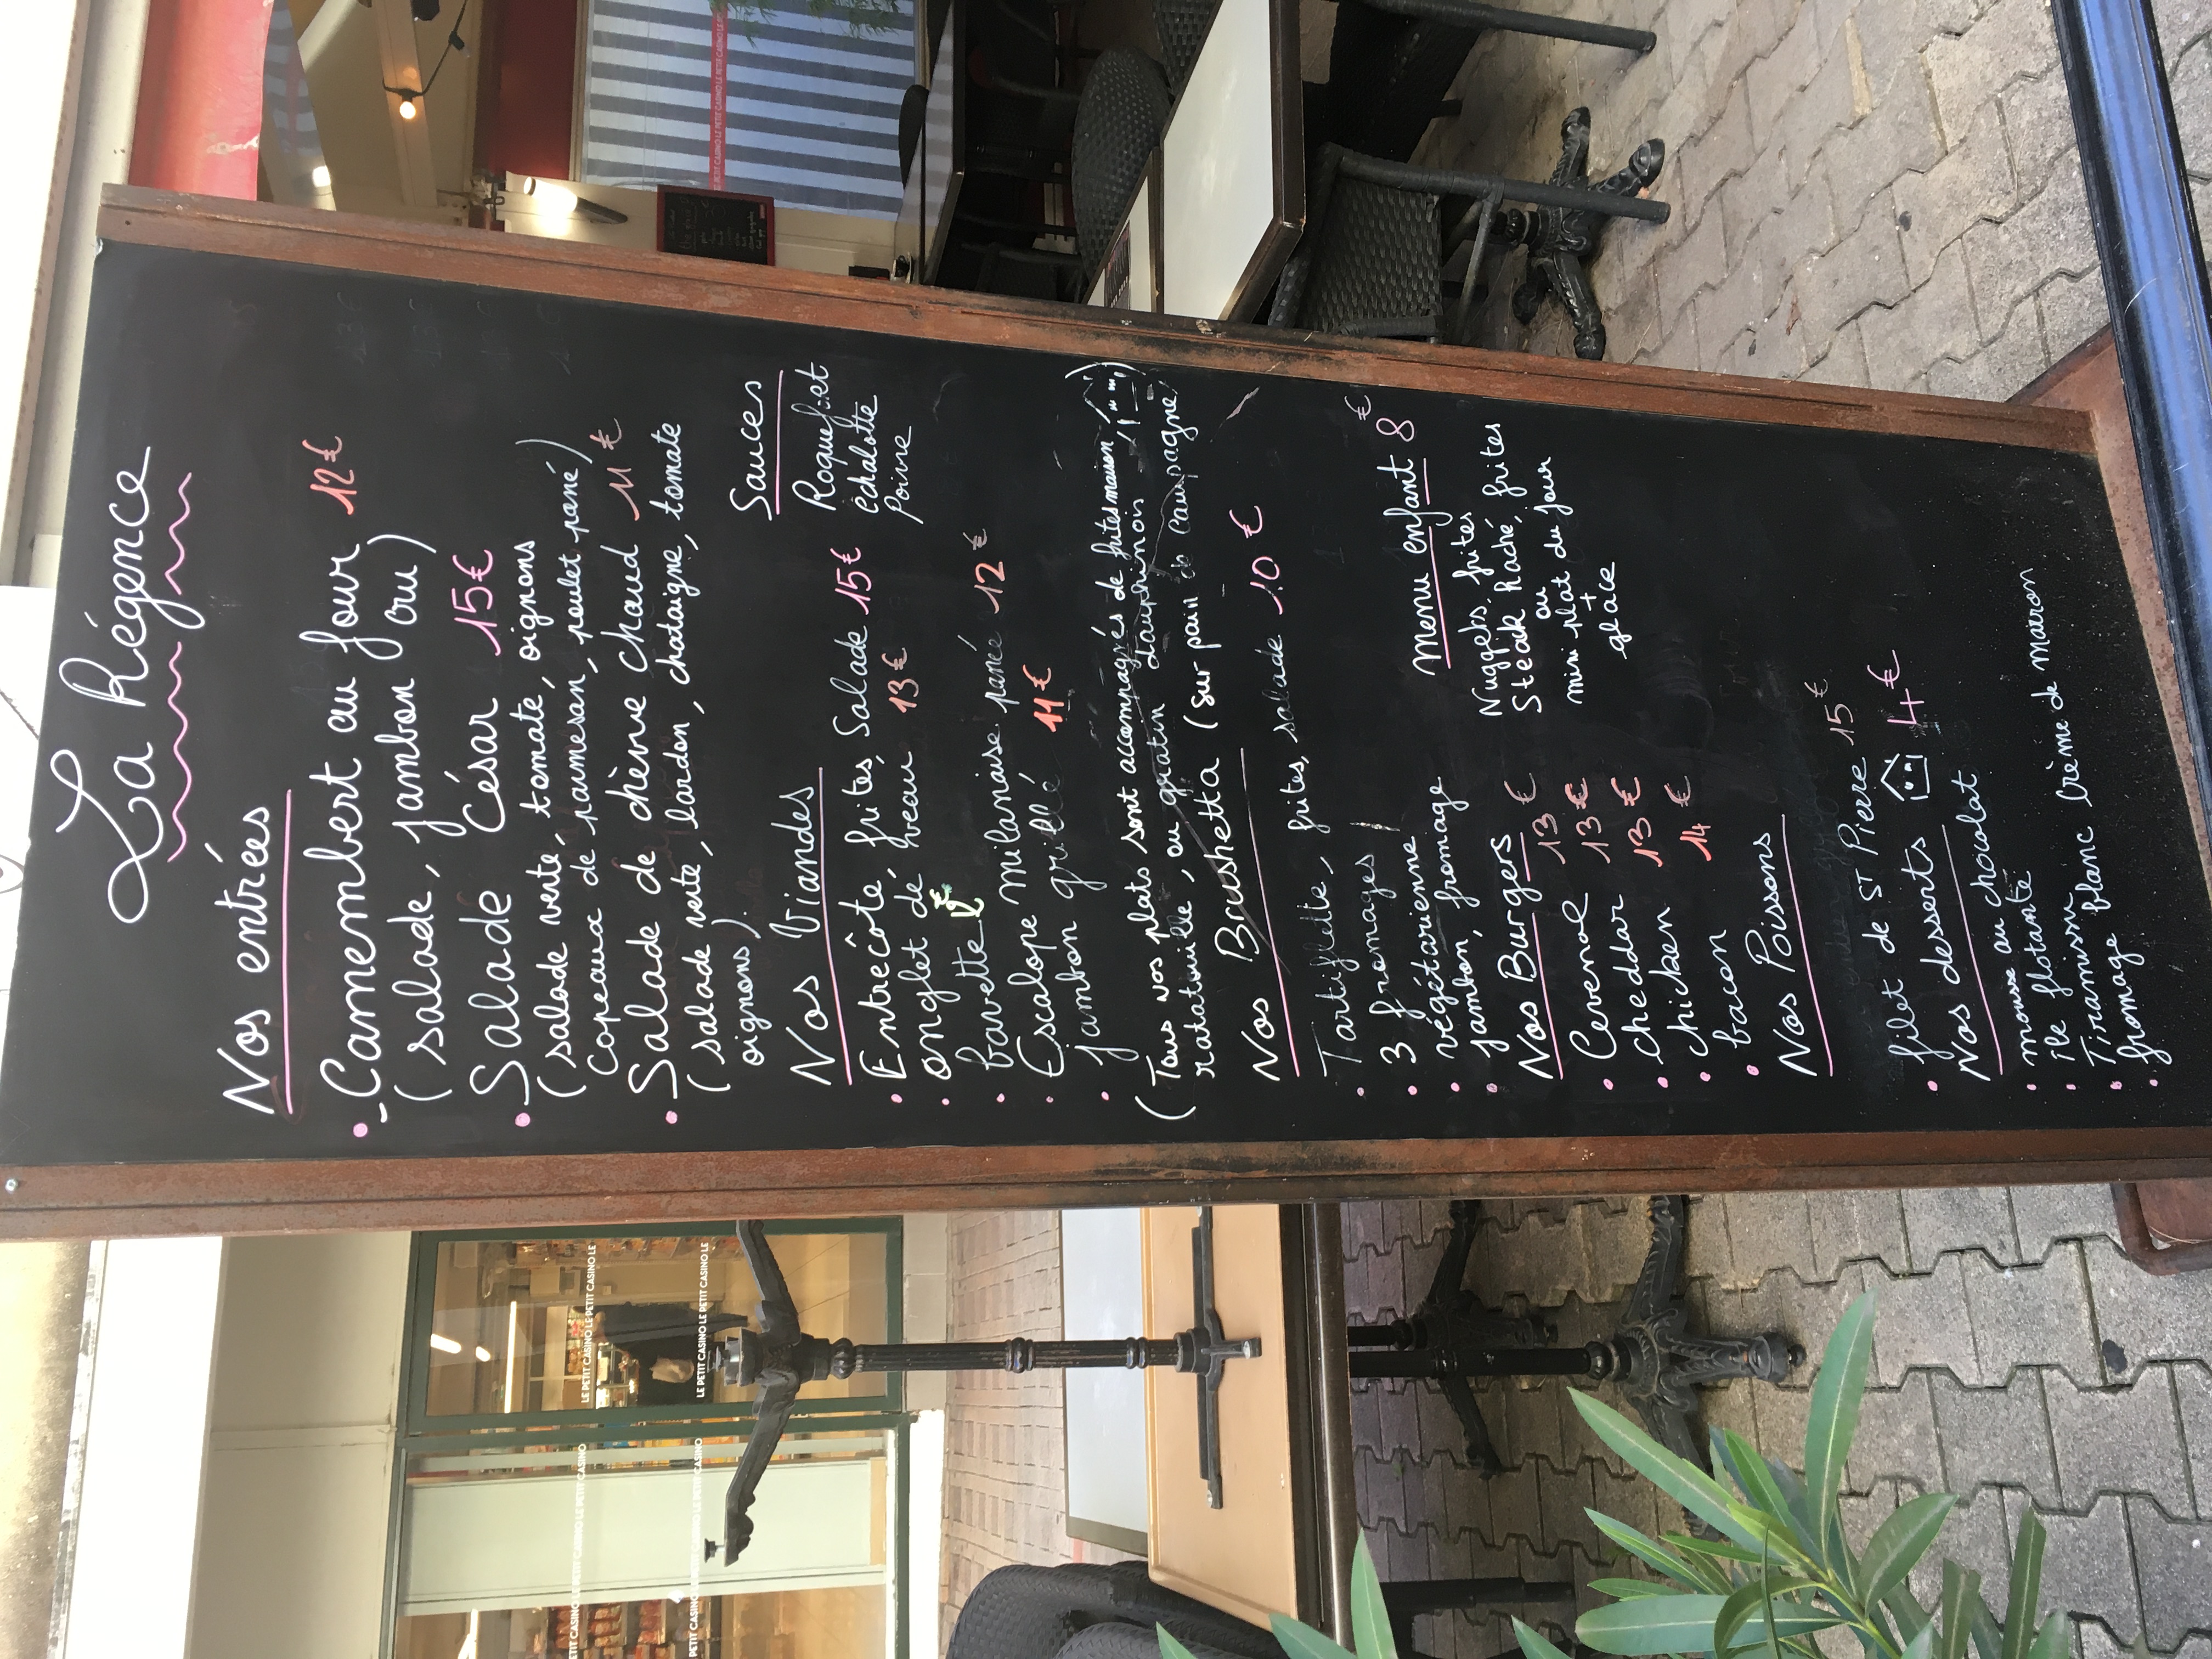 La Régence
Nos entrées
- Camembert au four 12€
(salade, jambon cru)
Salade César 15€
(salade verte, tomate, oignons
copeaux de parmesan, poulet pané)
Salade de chèvre chaud 11€
(salade verte, lardon, chataigne, tomate
oignons).
Sauces
Roquefort
échalotte
Poivre
Nos Viandes
Entrecôte, frites, Salade 15€
onglet de veau 13€
bavette 12€
Escalope milanaise panée 12€
jambon grillé 11€
(Tous nos plats sont accompagnés de frites maison
ratatouille, ou gratin dauphinois
Nos Brushetta (sur pain de campagne)
frites, salade 10€
Tartiflette,
3 fromages
végétarienne
jambon, fromage
Menu enfant 8€
Nuggets, frites
Steak haché, frites
ou
mini plat du jour
+
glace
Nos Burgers
Cevenol 13€
cheddar 13€
chicken 13€
bacon 14€
Nos Poissons
filet de St Pierre 15€
Nos desserts 4€
mousse au chocolat
île flotante
Tiramisu
fromage blanc crème de marron
LE PETIT CASINO LE PETIT CASINO LE PETIT CASINO LE
LE PETIT CASINO LE PETIT CASINO LE